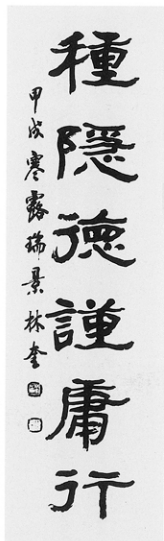 種隱德謹庸行
甲戌寒露瑞景林奎